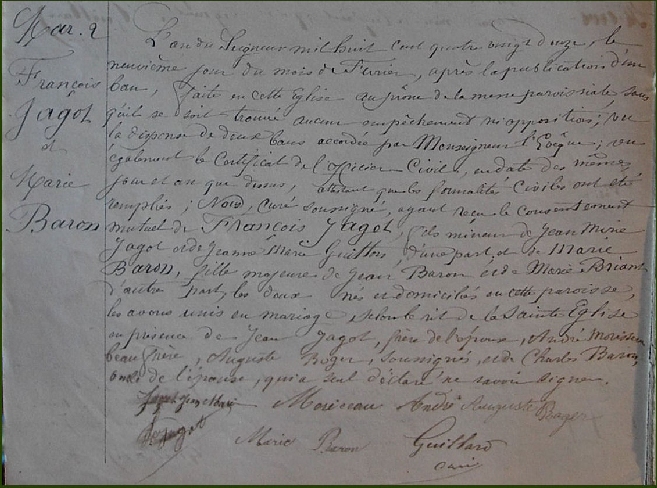 Mar. 2
François
Jagot
et
Marie
Baron
L'an du Seigneur mil huit cent quatre vingt onze, le
neuvième jour du mois de Février, après la publication d'un
ban, faite en cette Eglise au prône de la messe paroissiale sans
qu'il se soit trouvé aucun empêchement ni opposition; vu
la dispense de deux bans accordée par Monseigneur l'Evêque; vu
également le Certificat de l'officier Civil, en date des mêmes
jour et an que dessus, attestant que les formalités Civiles ont été
remplies; Nous, Curé soussigné, ayant reçu le Consentement
mutuel de François Jagot, fils mineur de Jean Marie
Jagot et de Jeanne Marie Guitton, d'une part, et de Marie
Baron, fille majeure de Jean Baron et de Marie Briand
d'autre part, les deux nés et domiciliés en cette paroisse,
les avons unis en mariage, selon le rit de la Sainte Eglise
en présence de Jean Jagot, frère de l'époux, André Morisseau
beau frère, Auguste Roger, soussignés, et de Charles Baron,
oncle de l'épouse, qui a seul déclaré ne savoir signer.
Jagot Jean Marie Morisseau André Auguste Roger
Jagot Marie Baron Guillard